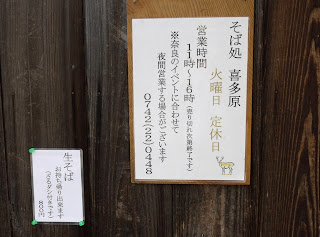 そば処 喜多原
火曜日 定休日
営業時間
11時～16時(売り切れ次第終了です)
※奈良のイベントに合わせて
夜間営業する場合がございます
0742(22)0448
生そば
お持ち帰り出来ます
(ざるダシ付きです)
800円